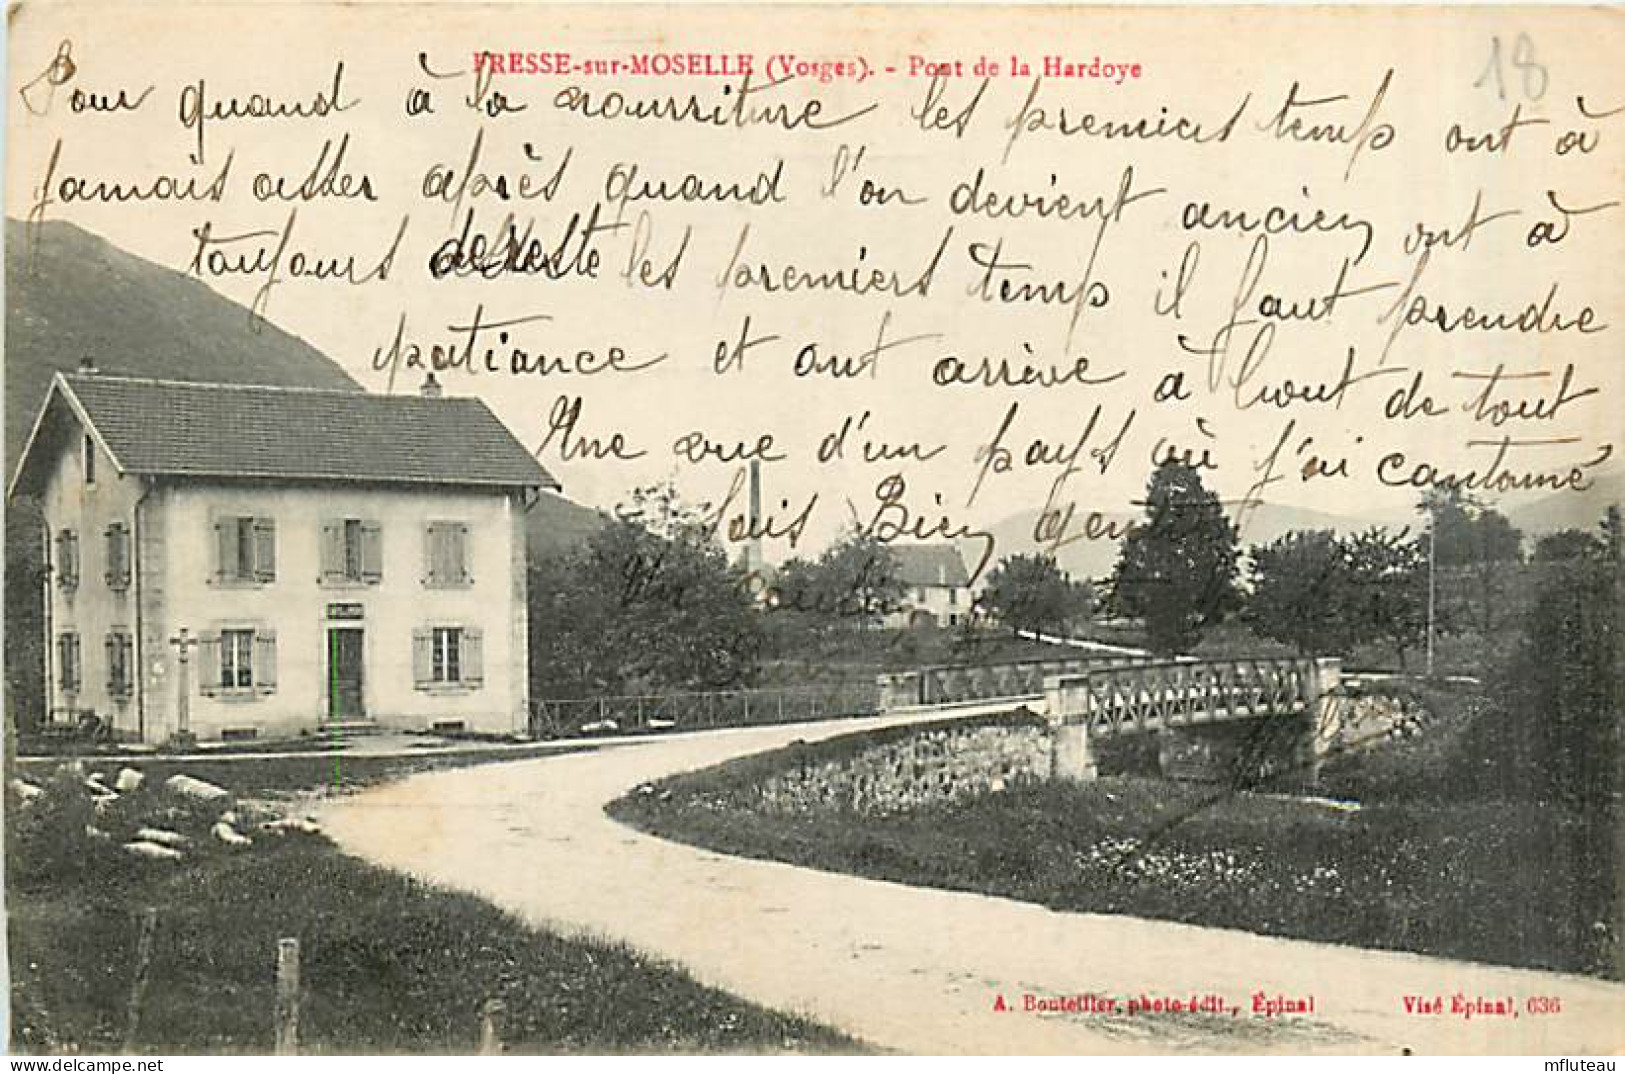 FRESSE-sur-MOSELLE (Vosges). - Pont de la Hardoye
18
Pour quand à la nourriture les premiers temp ont à
jamais asser après quand l'on devient ancien ont à
toujours de reste les premiers temp il faut prendre
patiance et ont arrive à bout de tout
Une vue d'un pays où j'ai cantonné
Sais Bien
A. Bouteiller, photo-édit., Épinal
Visé Épinal, 636
mfluteau